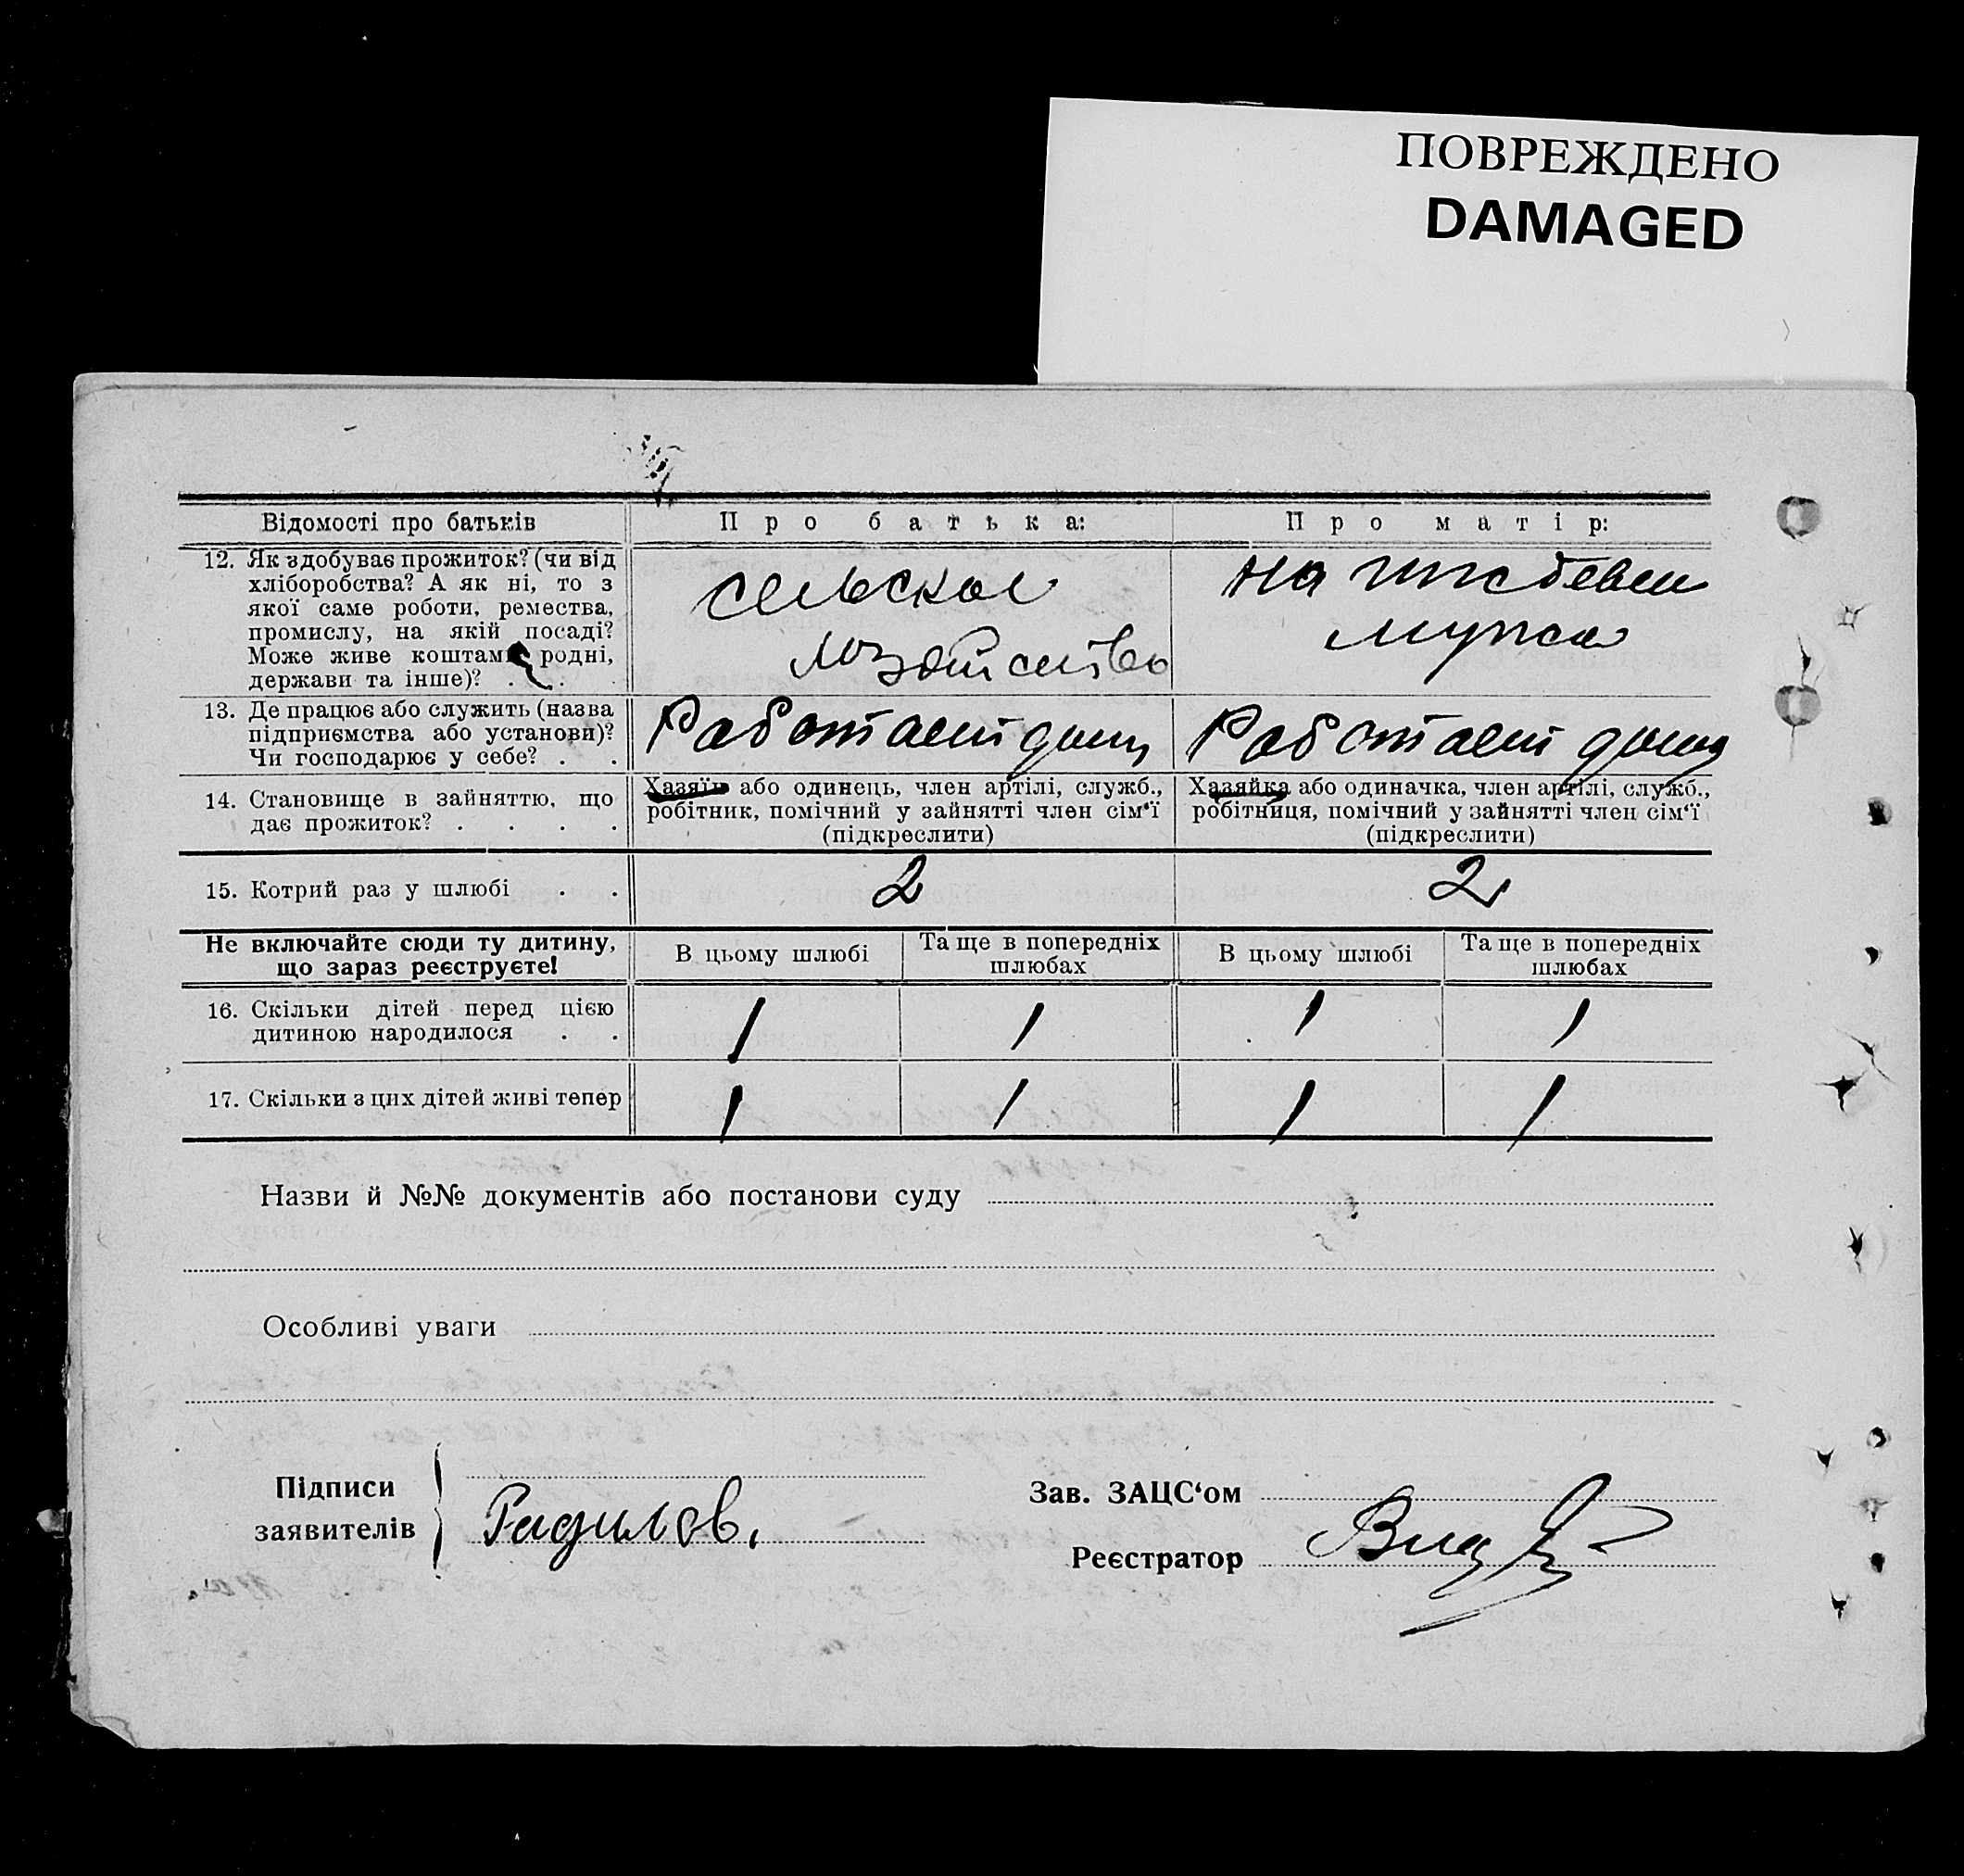 ПОВРЕЖДЕНО
DAMAGED
Відомості про батьків
Про батька:
Про матір:
12. Як здобуває прожиток? (чи від
хліборобства? А як ні, то з
якої саме роботи, ремества,
промислу, на якій посаді?
Може живе коштами родні,
держави та інше)? . . .
сельское
хозяйство
на иждевен
мужа
13. Де працює або служить (назва
підприємства або установи)?
Чи господарює у себе? . .
Работает дома
Работает дома
14. Становище в зайняттю, що
дає прожиток? . . . .
Хазяїн або одинець, член артілі, служб.,
робітник, помічний у зайнятті член сім‘ї
(підкреслити)
Хазяйка або одиначка, член артілі, служб.,
робітниця, помічний у зайнятті член сім‘ї
(підкреслити)
15. Котрий раз у шлюбі . .
2
2
Не включайте сюди ту дитину,
що зараз реєструєте!
В цьому шлюбі
Та ще в попередніх
шлюбах
В цьому шлюбі
Та ще в попередніх
шлюбах
16. Скільки дітей перед цією
дитиною народилося . .
1
1
1
1
17. Скільки з цих дітей живі тепер
1
1
1
1
Назви й №№ документів або постанови суду
Особливі уваги
Підписи
заявителів
Радилов.
Зав. ЗАЦС‘ом
Реєстратор